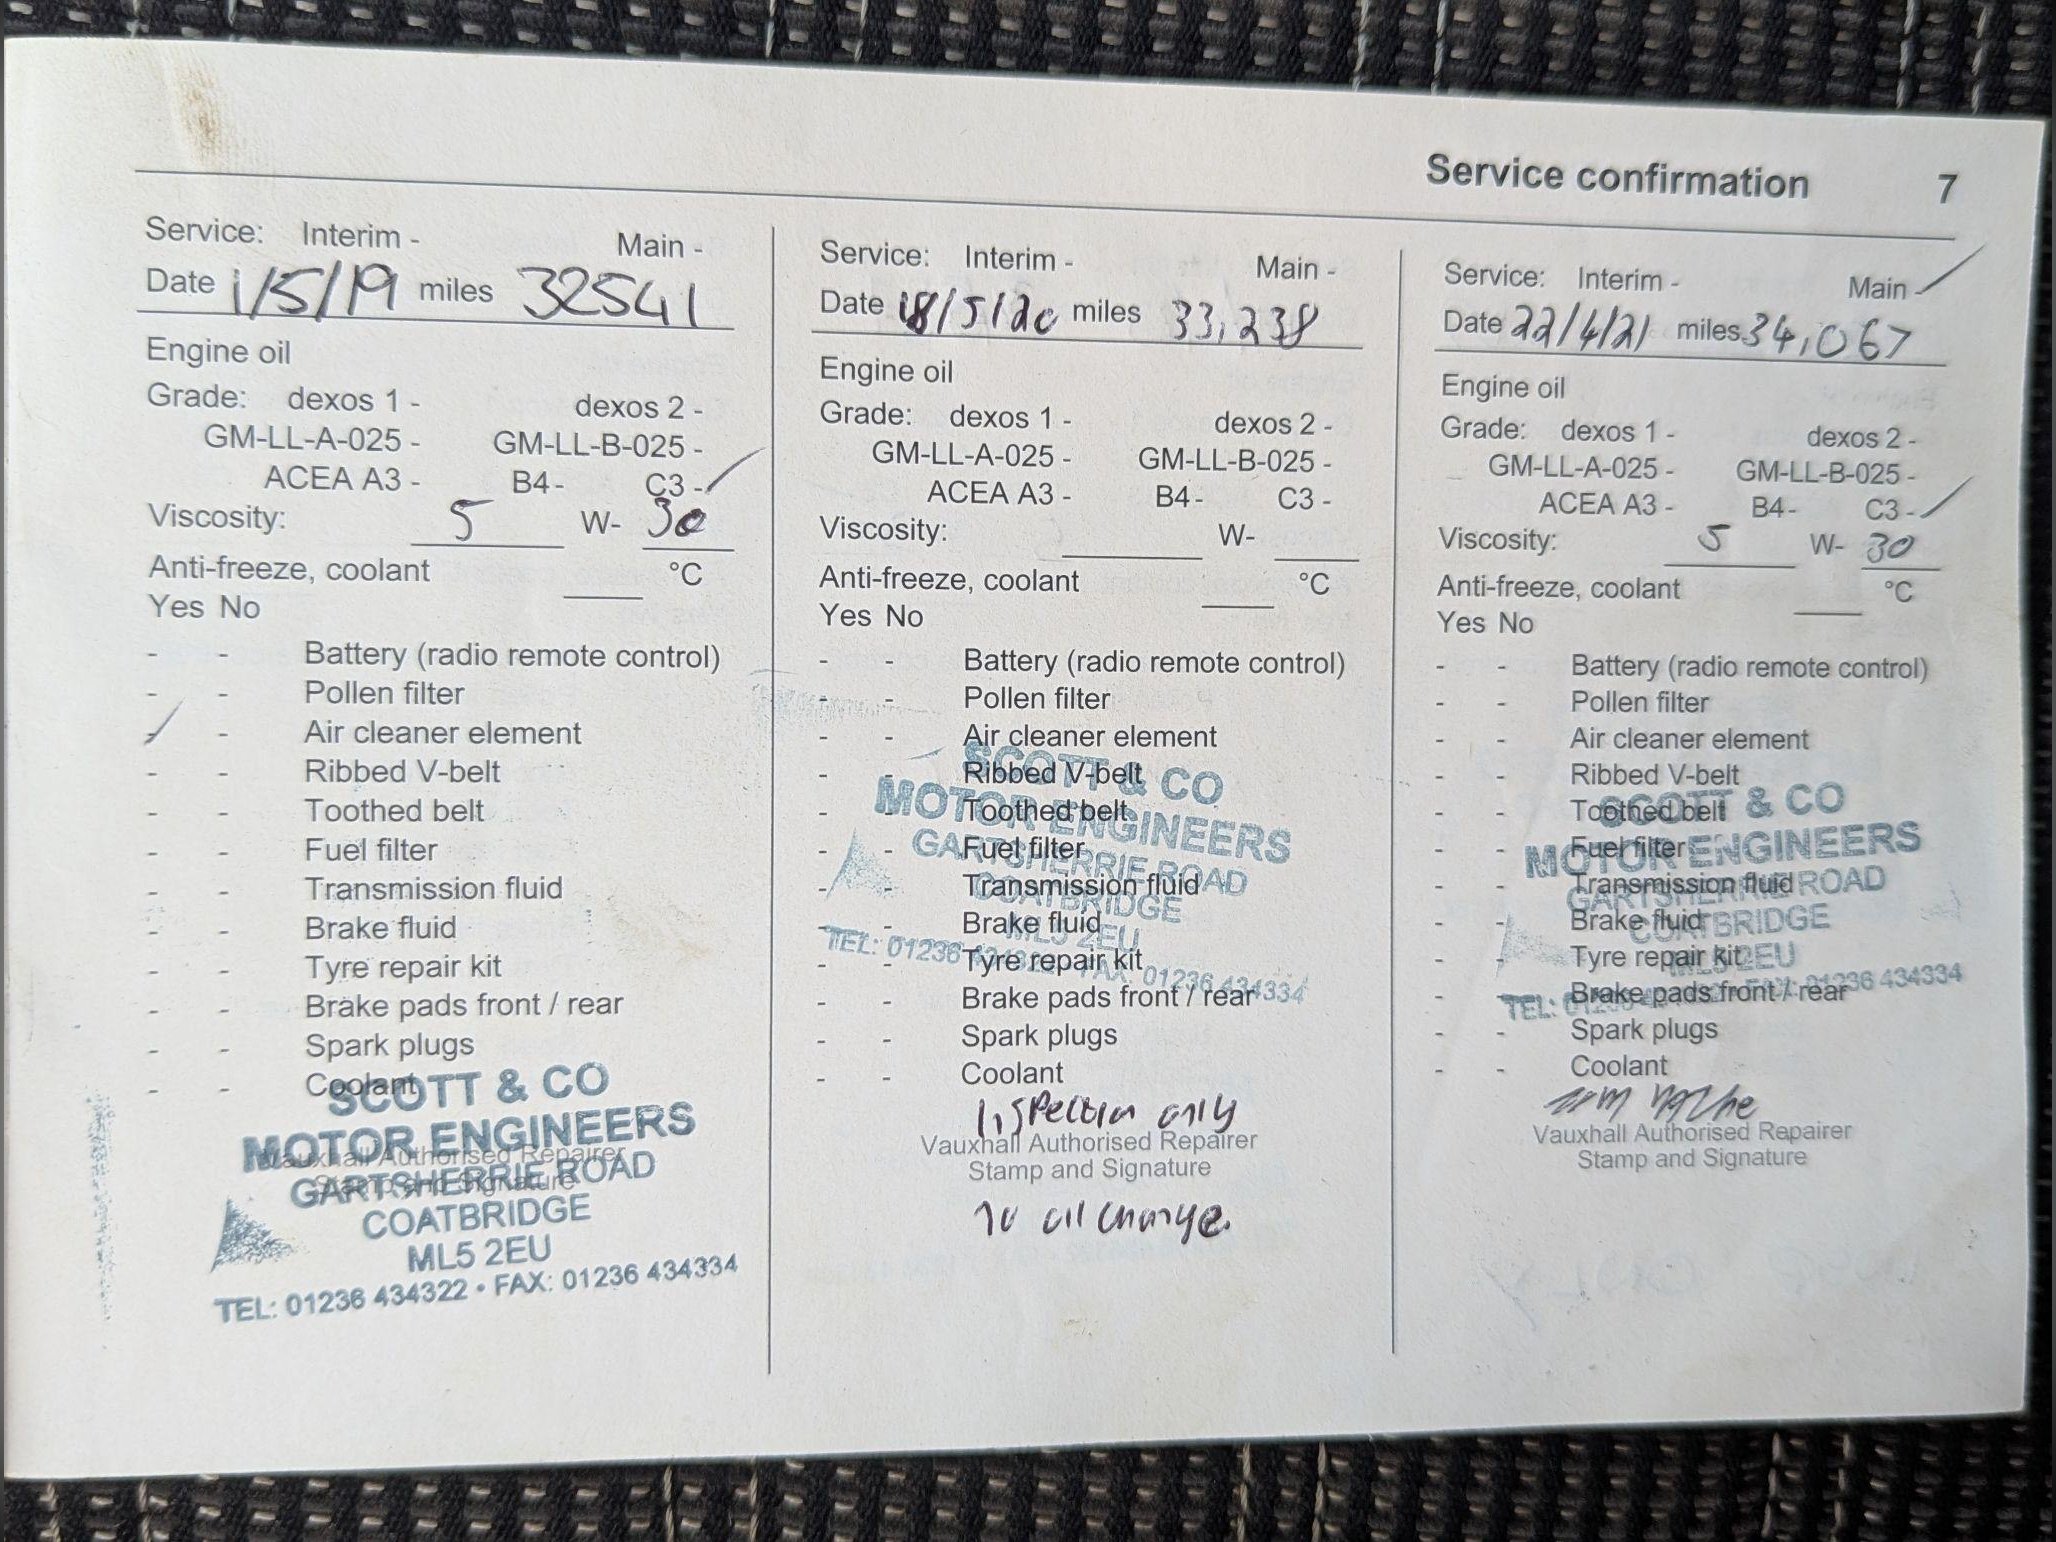 Service confirmation 7
Service: Interim - Main -
Date 1/5/19 miles 32541
Engine oil
Grade: dexos 1 - dexos 2 -
GM-LL-A-025 - GM-LL-B-025 -
ACEA A3 - B4 - C3 - ✓
Viscosity: 5 W- 30
Anti-freeze, coolant °C
Yes No
- - Battery (radio remote control)
- - Pollen filter
✓ - Air cleaner element
- - Ribbed V-belt
- - Toothed belt
- - Fuel filter
- - Transmission fluid
- - Brake fluid
- - Tyre repair kit
- - Brake pads front / rear
- - Spark plugs
- - Coolant
Vauxhall Authorised Repairer
Stamp and Signature
SCOTT & CO
MOTOR ENGINEERS
GARTSHERRIE ROAD
COATBRIDGE
ML5 2EU
TEL: 01236 434322 • FAX: 01236 434334
Service: Interim - Main -
Date 18/5/20 miles 33,238
Engine oil
Grade: dexos 1 - dexos 2 -
GM-LL-A-025 - GM-LL-B-025 -
ACEA A3 - B4 - C3 -
Viscosity: W-
Anti-freeze, coolant °C
Yes No
- - Battery (radio remote control)
- - Pollen filter
- - Air cleaner element
- - Ribbed V-belt
- - Toothed belt
- - Fuel filter
- - Transmission fluid
- - Brake fluid
- - Tyre repair kit
- - Brake pads front / rear
- - Spark plugs
- - Coolant
SCOTT & CO
MOTOR ENGINEERS
GARTSHERRIE ROAD
COATBRIDGE
ML5 2EU
TEL: 01236 434322 FAX: 01236 434334
Inspection only
Vauxhall Authorised Repairer
Stamp and Signature
no oil change.
Service: Interim - Main - ✓
Date 22/4/21 miles 34,067
Engine oil
Grade: dexos 1 - dexos 2 -
GM-LL-A-025 - GM-LL-B-025 -
ACEA A3 - B4 - C3 - ✓
Viscosity: 5 W- 30
Anti-freeze, coolant °C
Yes No
- - Battery (radio remote control)
- - Pollen filter
- - Air cleaner element
- - Ribbed V-belt
- - Toothed belt
- - Fuel filter
- - Transmission fluid
- - Brake fluid
- - Tyre repair kit
- - Brake pads front / rear
- - Spark plugs
- - Coolant
SCOTT & CO
MOTOR ENGINEERS
GARTSHERRIE ROAD
COATBRIDGE
ML5 2EU
TEL: 01236 434322 FAX: 01236 434334
Vauxhall Authorised Repairer
Stamp and Signature